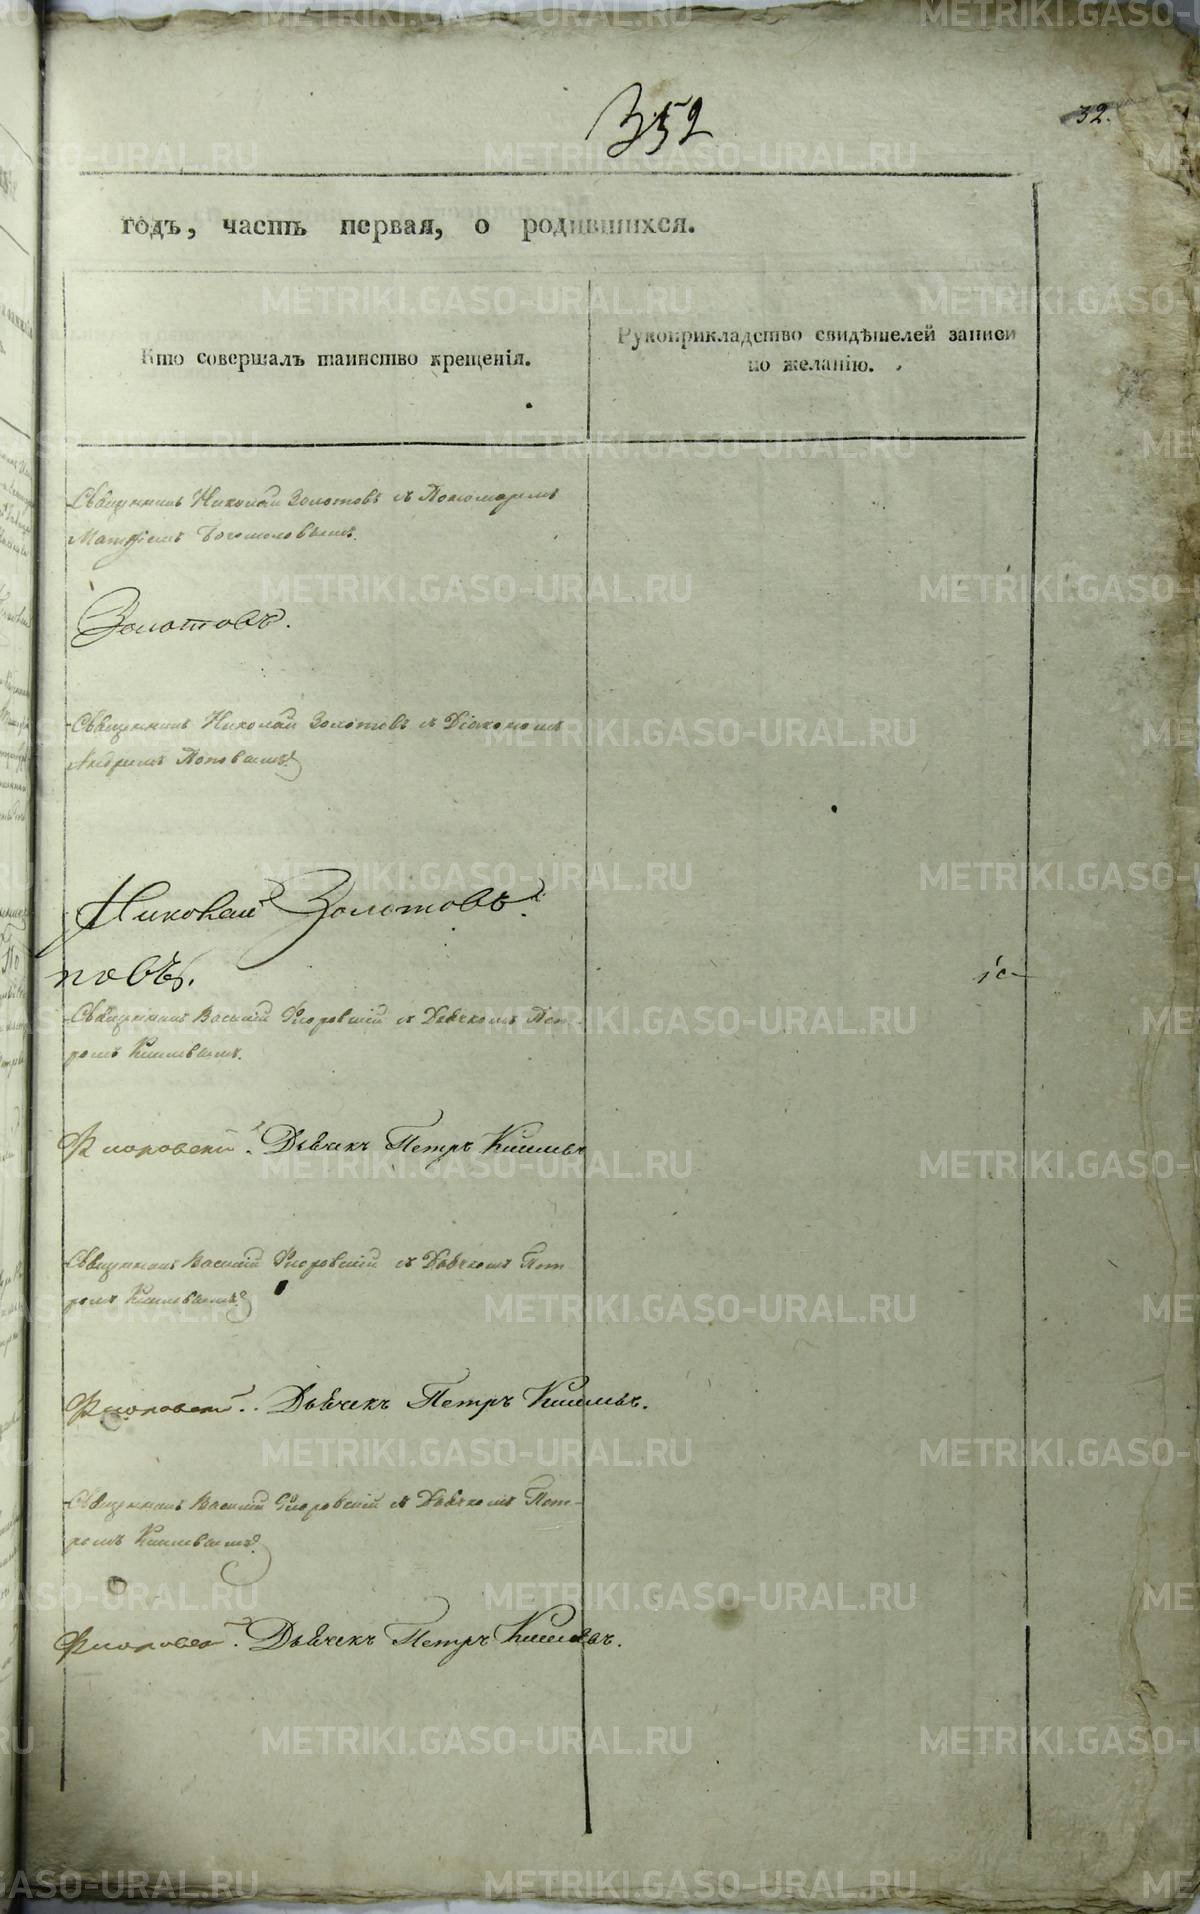 352
32.
годъ, часть первая, о родившихся.
Кто совершалъ таинство крещенія.
Рукоприкладство свидѣтелей записи
по желанію.
Священникъ Николай Золотовъ съ Пономаремъ
Матфіемъ Богословымъ.
Золотовъ.
Священникъ Николай Золотовъ съ Діакономъ
Андреемъ Поповымъ.
Николай Золотовъ.
повъ.
Священникъ Василій Флоровскій съ Дьячкомъ Пет-
ромъ
Флоровскій. Дьячекъ Петръ
Священникъ Василій Флоровскій съ Дьячкомъ Пет-
ромъ
Дьячекъ Петръ
Священникъ Василій Флоровскій съ Дьячкомъ Пет-
ромъ
Дьячекъ Петръ
METRIKI.GASO-URAL.RU